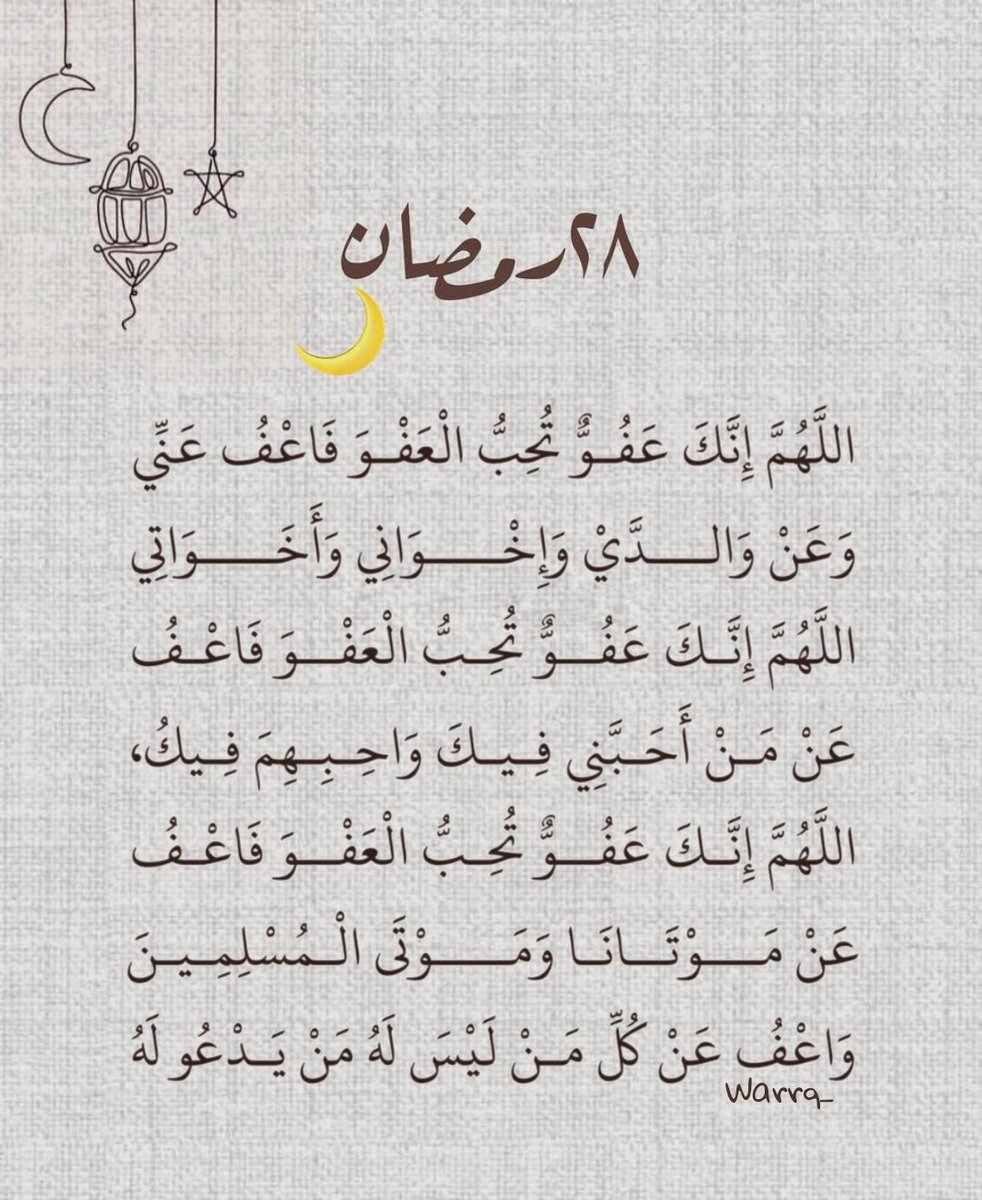 ٢٨رمضان
اللَّهُمَّ إِنَّكَ عَفُوٌّ تُحِبُّ الْعَفْوَ فَاعْفُ عَنِّي
وَعَنْ وَالدَّيْ وَإِخْوَانِي وَأَخَوَاتِي
اللَّهُمَّ إِنَّكَ عَفُوٌّ تُحِبُّ الْعَفْوَ فَاعْفُ
عَنْ مَنْ أَحَبَّنِي فِيكَ وَاحِبِهِمَ فِيكُ،
اللَّهُمَّ إِنَّكَ عَفُوٌّ تُحِبُّ الْعَفْوَ فَاعْفُ
عَنْ مَوْتَانَا وَمَوْتَى الْمُسْلِمِينَ
وَاعْفُ عَنْ كُلِّ مَنْ لَيْسَ لَهُ مَنْ يَدْعُو لَهُ
Warrq_